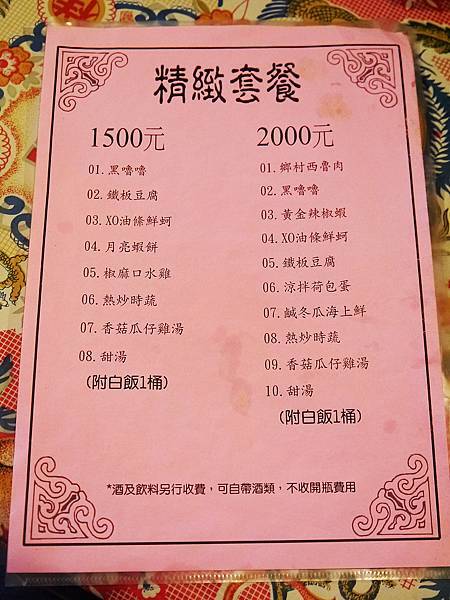 精緻套餐
1500元
01.黑嚕嚕
02.鐵板豆腐
03.XO油條鮮蚵
04.月亮蝦餅
05.椒麻口水雞
06.熱炒時蔬
07.香菇瓜仔雞湯
08.甜湯
(附白飯1桶)
2000元
01.鄉村西魯肉
02.黑嚕嚕
03.黃金辣椒蝦
04.XO油條鮮蚵
05.鐵板豆腐
06.涼拌荷包蛋
07.鹹冬瓜海上鮮
08.熱炒時蔬
09.香菇瓜仔雞湯
10.甜湯
(附白飯1桶)
*酒及飲料另行收費，可自帶酒類，不收開瓶費用